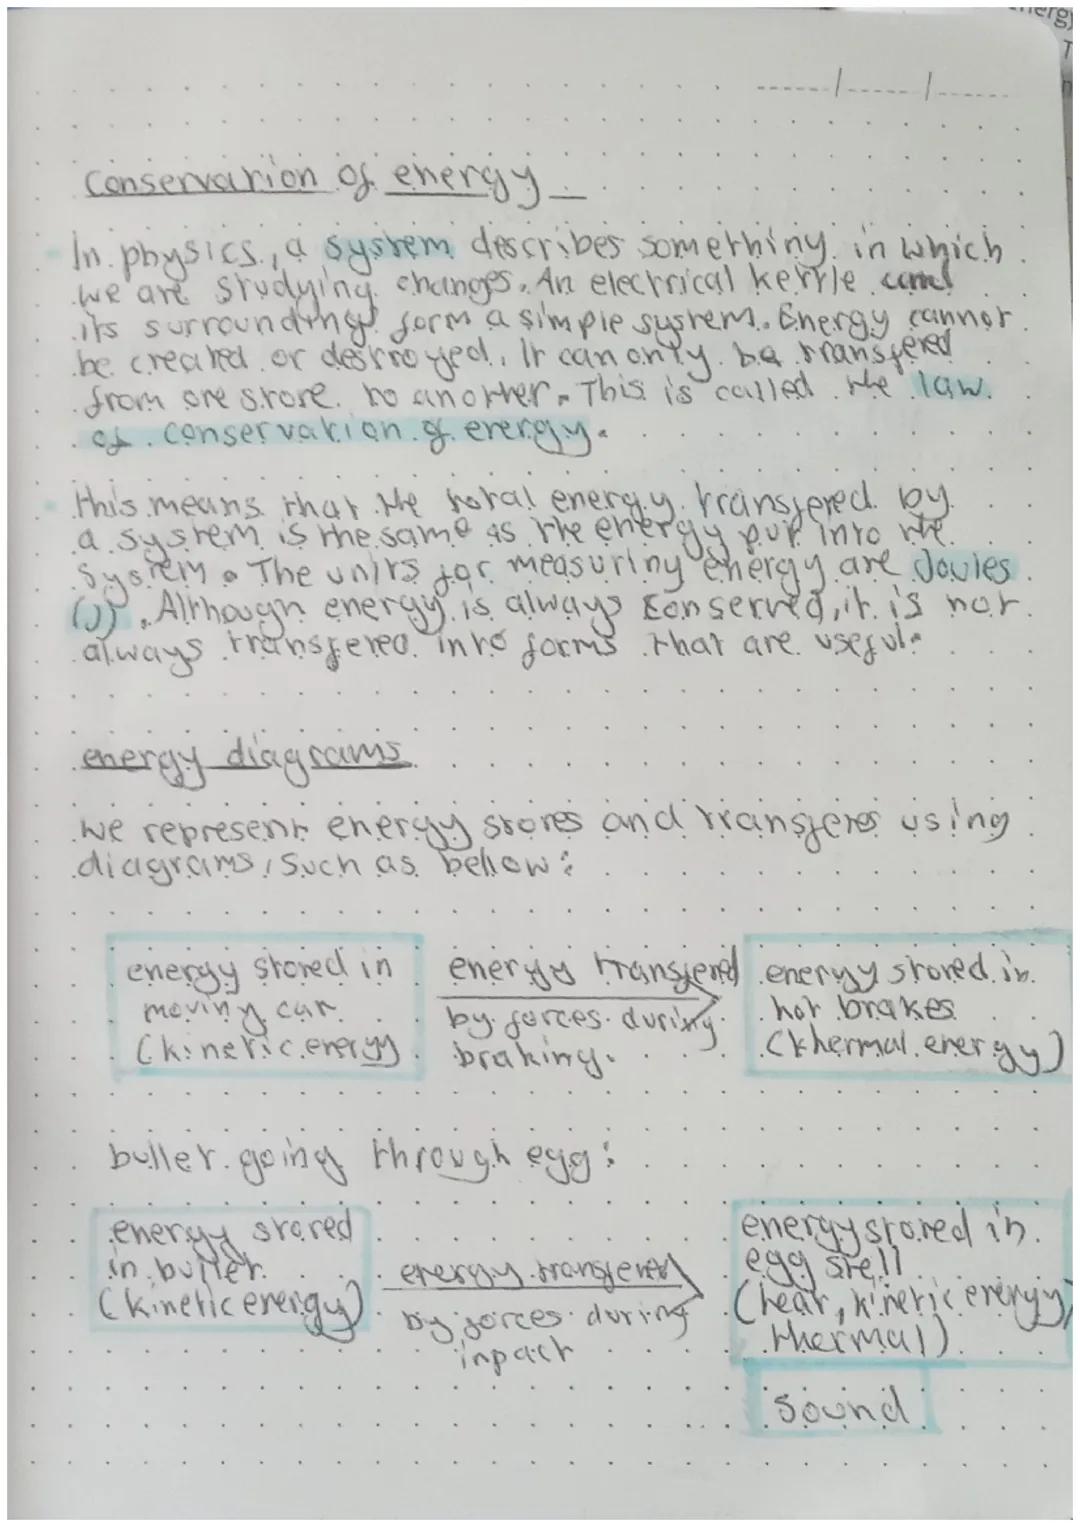 Conservation of energy
In physics, a system describes something in which
we are studying changes. An electrical kettle and
its surroundings form a simple system. Energy cannot
be created or destroyed. It can only be transfered
from one store to another. This is called the law
of conservation of energy.
this means that the total energy transfered by
a system is the same as the energy put into the
system. The units for measuring energy are Joules
(J). Although energy is always conserved, it is not
always transfered into forms that are useful.
energy diagrams
we represent energy stores and transferes using
diagrams, such as bellow:
energy stored in
moving car
(kinetic energy
energy transfered
by forces during
braking.
energy stored in
hot brakes
(thermal energy)
bullet going through egg:
energy stored
in bullet
(kinetic energy)
energy transfered
by forces during
inpact
energy stored in
egg shell
(heat, kinetic energy,
thermal)
sound